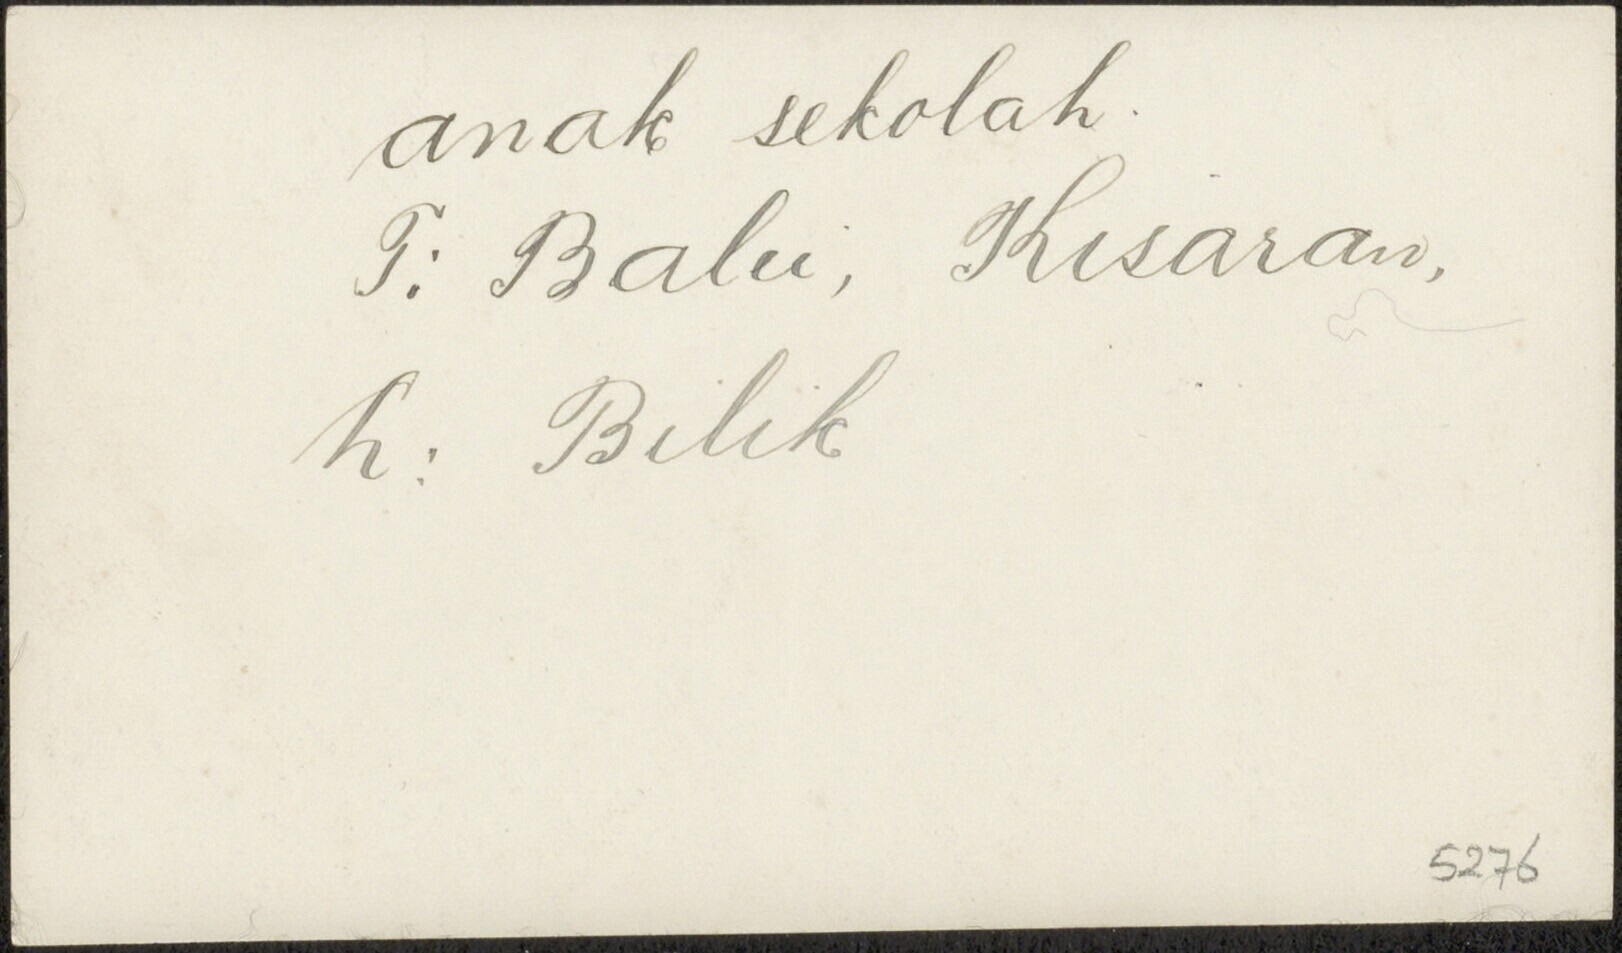 anak sekolah.
T: Balei, Kisaran,
h: Bilik
5276